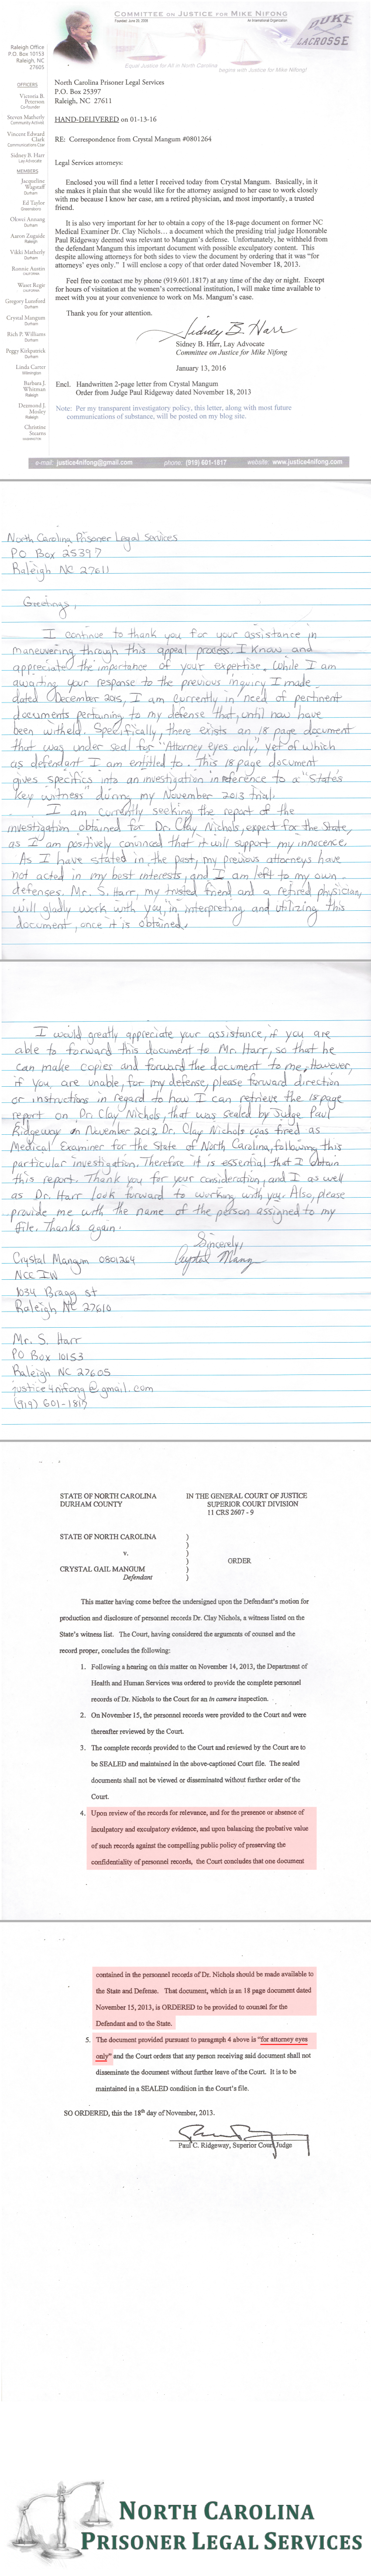 COMMITTEE ON JUSTICE FOR MIKE NIFONG
An International Organization
DUKE
LACROSSE
Equal Justice for All in North Carolina
begins with Justice for Mike Nifong!
Raleigh Office
P.O. Box 10153
Raleigh, NC
27605
OFFICERS
Victoria B.
Peterson
Co-Founder
Steven Matherly
Community Activist
Vincent Edward
Clark
Sidney B. Harr
Lay Advocate
MEMBERS
Jacqueline
Wagstaff
Durham
Ed Taylor
Greensboro
Raleigh
Vikki Matherly
Durham
Ronnie Austin
Durham
Crystal Mangum
Durham
Rich P. Williams
Durham
Peggy Kirkpatrick
Durham
Linda Carter
Wilmington
Barbara J.
Whitman
Raleigh
Desmond J.
Mosley
Raleigh
Christine
Stearns
North Carolina Prisoner Legal Services
P.O. Box 25397
Raleigh, NC 27611
HAND-DELIVERED on 01-13-16
RE: Correspondence from Crystal Mangum #0801264
Legal Services attorneys:
Enclosed you will find a letter I received today from Crystal Mangum. Basically, in it
she makes it plain that she would like for the attorney assigned to her case to work closely
with me because I know her case, am a retired physician, and most importantly, a trusted
friend.
It is also very important for her to obtain a copy of the 18-page document on former NC
Medical Examiner Dr. Clay Nichols... a document which the presiding trial judge Honorable
Paul Ridgeway deemed was relevant to Mangum's defense. Unfortunately, he withheld from
the defendant Mangum this important document with possible exculpatory content. This
despite allowing attorneys for both sides to view the document by ordering that it was "for
attorneys' eyes only." I will enclose a copy of that order dated November 18, 2013.
Feel free to contact me by phone (919.601.1817) at any time of the day or night. Except
for hours of visitation at the women's correctional institution, I will make time available to
meet with you at your convenience to work on Ms. Mangum's case.
Thank you for your attention.
Sidney B. Harr
Sidney B. Harr, Lay Advocate
Committee on Justice for Mike Nifong
January 13, 2016
Encl. Handwritten 2-page letter from Crystal Mangum
Order from Judge Paul Ridgeway dated November 18, 2013
Note: Per my transparent investigatory policy, this letter, along with most future
communications of substance, will be posted on my blog site.
e-mail: justice4nifong@gmail.com phone: (919) 601-1817 website: www.justice4nifong.com
North Carolina Prisoner Legal Services
PO Box 25397
Raleigh NC 27611
Greetings,
I continue to thank you for your assistance in
maneuvering through this appeal process. I know and
appreciate the importance of your expertise. While I am
awaiting your response to the previous inquiry I made
dated December 2015, I am currently in need of pertinent
documents pertaining to my defense that, until now have
been witheld. Specifically, there exists an 18 page document
that was under seal for "Attorney eyes only, yet of which
as defendant I am entitled to. This 18 page document
gives specifics into an investigation in reference to a "State's
Key witness" during my November 2013 trial.
I am currently seeking the report of the
investigation obtained for Dr. Clay Nichols, expert for the State,
as I am positively convinced that it will support my innocence.
As I have stated in the past, my previous attorneys have
not acted in my best interests, and I am left to my own
defenses. Mr. S. Harr, my trusted friend and a retired physician,
will gladly work with you, in interpreting and utilizing this
document, once it is obtained.
I would greatly appreciate your assistance, if you are
able to forward this document to Mr. Harr, so that he
can make copies and forward the document to me. However,
if you are unable, for my defense, please forward direction
or instructions in regard to how I can retrieve the 18 page
report on Dr. Clay Nichols, that was sealed by Judge Paul
Ridgeway in November 2013. Dr. Clay Nichols was fired as
Medical Examiner for the State of North Carolina, following this
particular investigation. Therefore it is essential that I obtain
this report. Thank you for your consideration, and I as well
as Dr. Harr look forward to working with you. Also, please
provide me with the name of the person assigned to my
file. Thanks again.
Sincerely,
Crystal Mangum 0801264 Crystal Mangum
NCCIW
1034 Bragg st
Raleigh NC 27610
Mr. S. Harr
PO Box 10153
Raleigh NC 27605
justice4nifong@gmail.com
(919) 601-1817
STATE OF NORTH CAROLINA IN THE GENERAL COURT OF JUSTICE
DURHAM COUNTY SUPERIOR COURT DIVISION
11 CRS 2607 - 9
STATE OF NORTH CAROLINA )
)
v. )
) ORDER
CRYSTAL GAIL MANGUM )
Defendant )
This matter having come before the undersigned upon the Defendant's motion for
production and disclosure of personnel records Dr. Clay Nichols, a witness listed on the
State's witness list. The Court, having considered the arguments of counsel and the
record proper, concludes the following:
1. Following a hearing on this matter on November 14, 2013, the Department of
Health and Human Services was ordered to provide the complete personnel
records of Dr. Nichols to the Court for an in camera inspection.
2. On November 15, the personnel records were provided to the Court and were
thereafter reviewed by the Court.
3. The complete records provided to the Court and reviewed by the Court are to
be SEALED and maintained in the above-captioned Court file. The sealed
documents shall not be viewed or disseminated without further order of the
Court.
4. Upon review of the records for relevance, and for the presence or absence of
inculpatory and exculpatory evidence, and upon balancing the probative value
of such records against the compelling public policy of preserving the
confidentiality of personnel records, the Court concludes that one document
contained in the personnel records of Dr. Nichols should be made available to
the State and Defense. That document, which is an 18 page document dated
November 15, 2013, is ORDERED to be provided to counsel for the
Defendant and to the State.
5. The document provided pursuant to paragraph 4 above is "for attorney eyes
only" and the Court orders that any person receiving said document shall not
disseminate the document without further leave of the Court. It is to be
maintained in a SEALED condition in the Court's file.
SO ORDERED, this the 18th day of November, 2013.
Paul C. Ridgeway, Superior Court Judge
NORTH CAROLINA
PRISONER LEGAL SERVICES